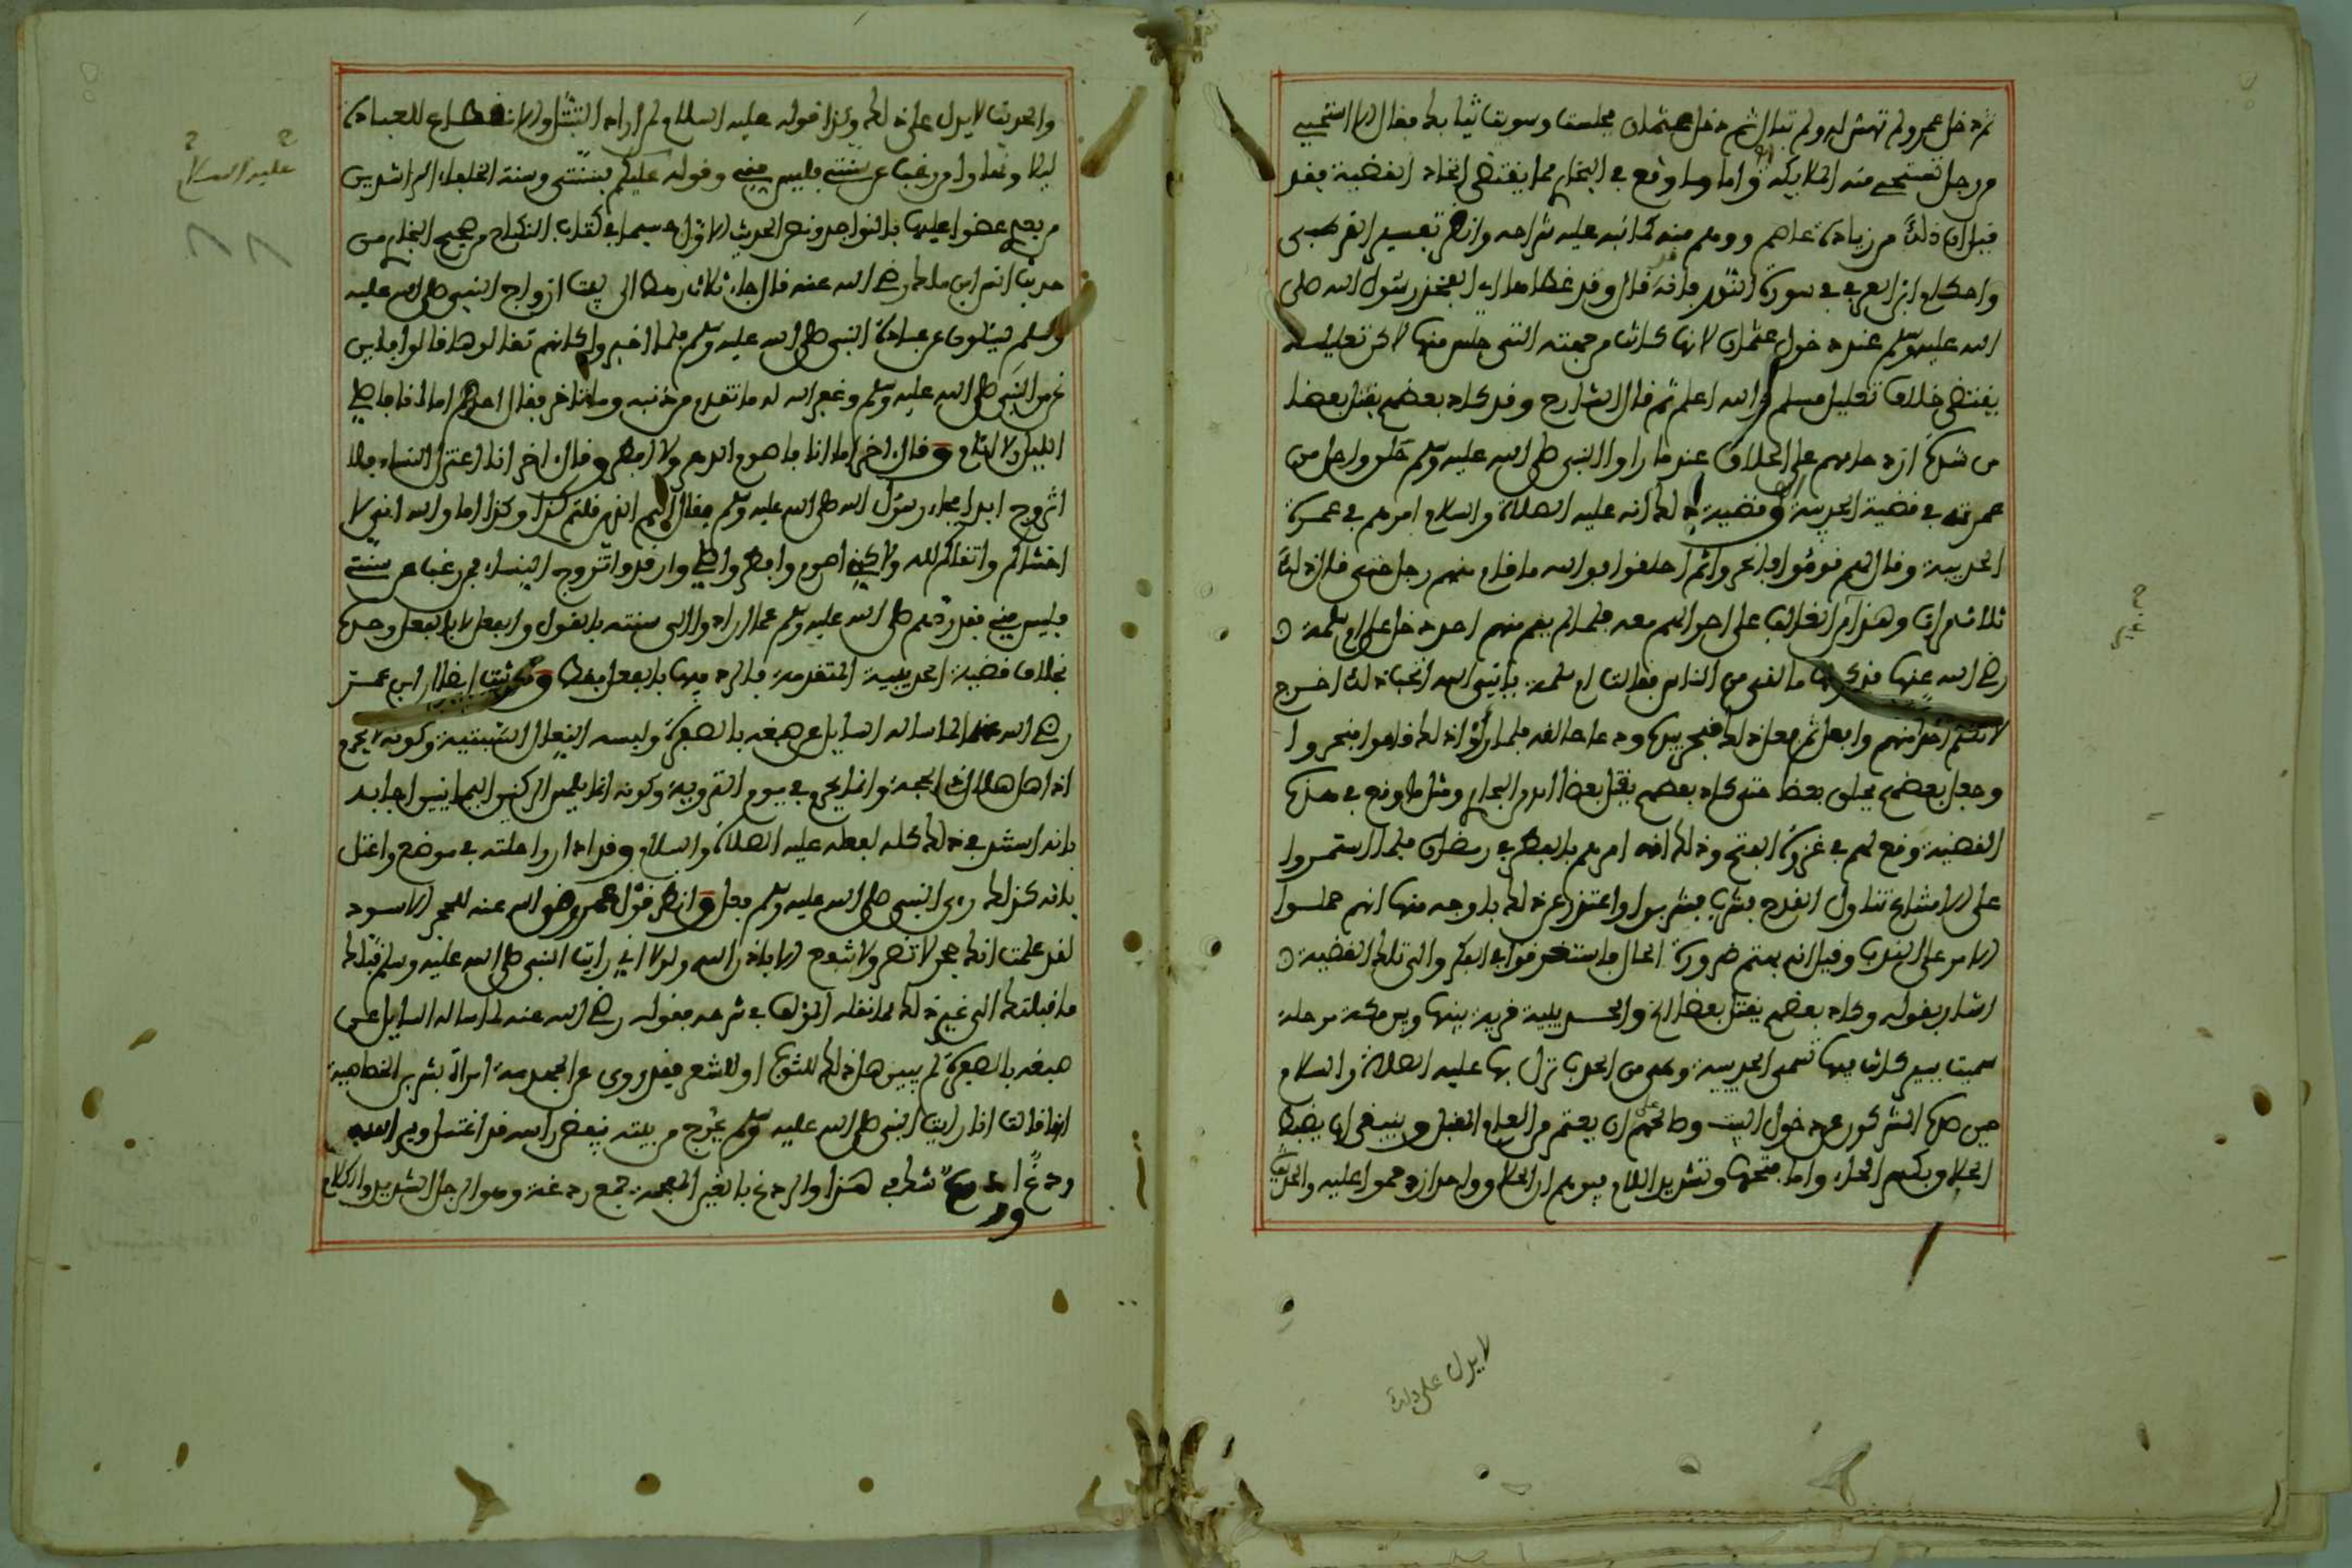 ثم دخل عمر ولم تهتش له ولم تبال ثم دخل عثمان فجلست وسويت ثيابك فقال الا استحيي
من رجل تستحيي منه الملايكة واما ما وقع في البخاري مما يقتضي اتحاد القضية فقد
قيل ان ذلك من زيادة عاصم ووهم منه كما نبه عليه شراحه وانظر تفسير القرطبي
واحكام ابن العربي في سورة النور فانه قال وقد غطاها اي الفخذ رسول الله صلى
الله عليه وسلم عند دخول عثمان لانها كانت من جهته التي جلس منها لاكن تعليله
يقتضي خلاف تعليل مسلم والله اعلم ثم قال الشارح وقد كاد بعضهم يقتل بعضا
من شدة ازدحامهم على الحلاق عندما راوا النبي صلى الله عليه وسلم حلق واحل من
عمرته في قضية الحديبية وقضية ذلك انه عليه الصلاة والسلام امرهم في عمرة
الحديبية وقال لهم قوموا فانحروا ثم احلقوا فوالله ما قام منهم رجل حتى قال ذلك
ثلاث مرات وهذا من الغالب على احوالهم معه فلما لم يقم منهم احد دخل على ام سلمة
رضي الله عنها فذكر لها ما لقي من الناس فقالت ام سلمة يا نبي الله اتحب ذلك اخرج
لا تكلم احدا منهم وافعل ثم فعل ذلك فنحر بيده ودعا حالقه فلما راوا ذلك قاموا فنحروا
وجعل بعضهم يحلق بعضا حتى كاد بعضهم يقتل بعضا الى من البخاري ومثل ما وقع في هذه
القضية وقع لهم في غزوة الفتح وذلك انه امرهم بالفطر في رمضان فلما استمروا
على الامتناع تناول القدح فشرب فشربوا واعتذر عن ذلك باوجه منها انهم حملوا
الامر على الندب وقيل انهم بهتهم صورة الحال فاستغرقوا في الفكر والى تلك القضية
اشار بقوله وكاد بعضهم يقتل بعضا الخ والحديبية قرية بينها وبين مكة مرحلة
سميت ببير كانت فيها تسمى الحديبية وهي من الحرم نزل بها عليه الصلاة والسلام
حين صده المشركون عن دخول البيت وصالحهم على ان يعتمر من العام القبل وينبغي ان يضبط
الحلاق بكسر الحاء واما فتحها وتشديد اللام فيوهم ان الحلاق واحد ازدحموا عليه والحديث
لا يدل على ذلك
والحديث لا يدل على ذلك وكذا قوله عليه السلام لمن اراد التبتل والانقطاع للعبادة
ليلا ونهارا من رغب عن سنتي فليس مني وقوله عليكم بسنتي وسنة الخلفاء الراشدين
من بعدي عضوا عليها بالنواجد ونص الحديث الاول سيما في كتاب النكاح من صحيح البخاري من
حديث انس ابن مالك رضي الله عنه قال جاء ثلاث رهط الى بيت ازواج النبي صلى الله عليه
وسلم يسئلون عن عبادة النبي صلى الله عليه وسلم فلما اخبروا كانهم تقالوها قالوا فاين
نحن من النبي صلى الله عليه وسلم وغفر الله له ما تقدم من ذنبه وما تاخر فقال احدهم اما انا فاصلي
الليل لا انام وقال اخر اما انا فاصوم الدهر ولا افطر وقال اخر انا اعتزل النساء فلا
اتزوج ابدا فجاء رسول الله صلى الله عليه وسلم فقال اليهم انتم قلتم كذا وكذا اما والله اني لا
اخشاكم واتقاكم لله ولاكني اصوم وافطر واصلي وارقد واتزوج النساء فمن رغب عن سنتي
فليس مني فقد ردهم صلى الله عليه وسلم عما ارادوا الى سنته بالقول والفعل لا بالفعل وحده
بخلاف قضية الحديبية المتقدمة فالرد فيها بالفعل فقط وكونت ايضا ابن عمر
رضي الله عنه لما ساله السايل عن صبغه بالصفرة ولبسه النعال السبتية وكونه لا يحرم
اذا اهل هلال ذي الحجة وانما يحرم في يوم التروية وكونه انما يلمس الركنين اليمانيين اجابه
بانه استند في ذلك كله لفعله عليه الصلاة والسلام وقد ادار راحلته في موضع واعتل
بانه كذلك رءى النبي صلى الله عليه وسلم فعل وانظر قول عمر رضي الله عنه للحجر الاسود
لقد علمت انك حجر لا تضر ولا تنفع الا باذن الله ولولا اني رايت النبي صلى الله عليه وسلم قبلك
ما قبلتك الى غير ذلك مما نقله المؤلف في شرحه فقوله رضي الله عنه لما ساله السايل عن
صبغه بالصفرة لم يبين هل ذلك للثوب او للشعر فقد روي عن الجهدمة امراة بشر بن الخصاصية
انها قالت انا رايت النبي صلى الله عليه وسلم يخرج من بيته ينفض راسه قد اغتسل وبراسه
ردغ او ردع شك في هذا والردغ بالغين المعجمة جمع ردغة وهو الوحل الشديد والركام
عليه السلام